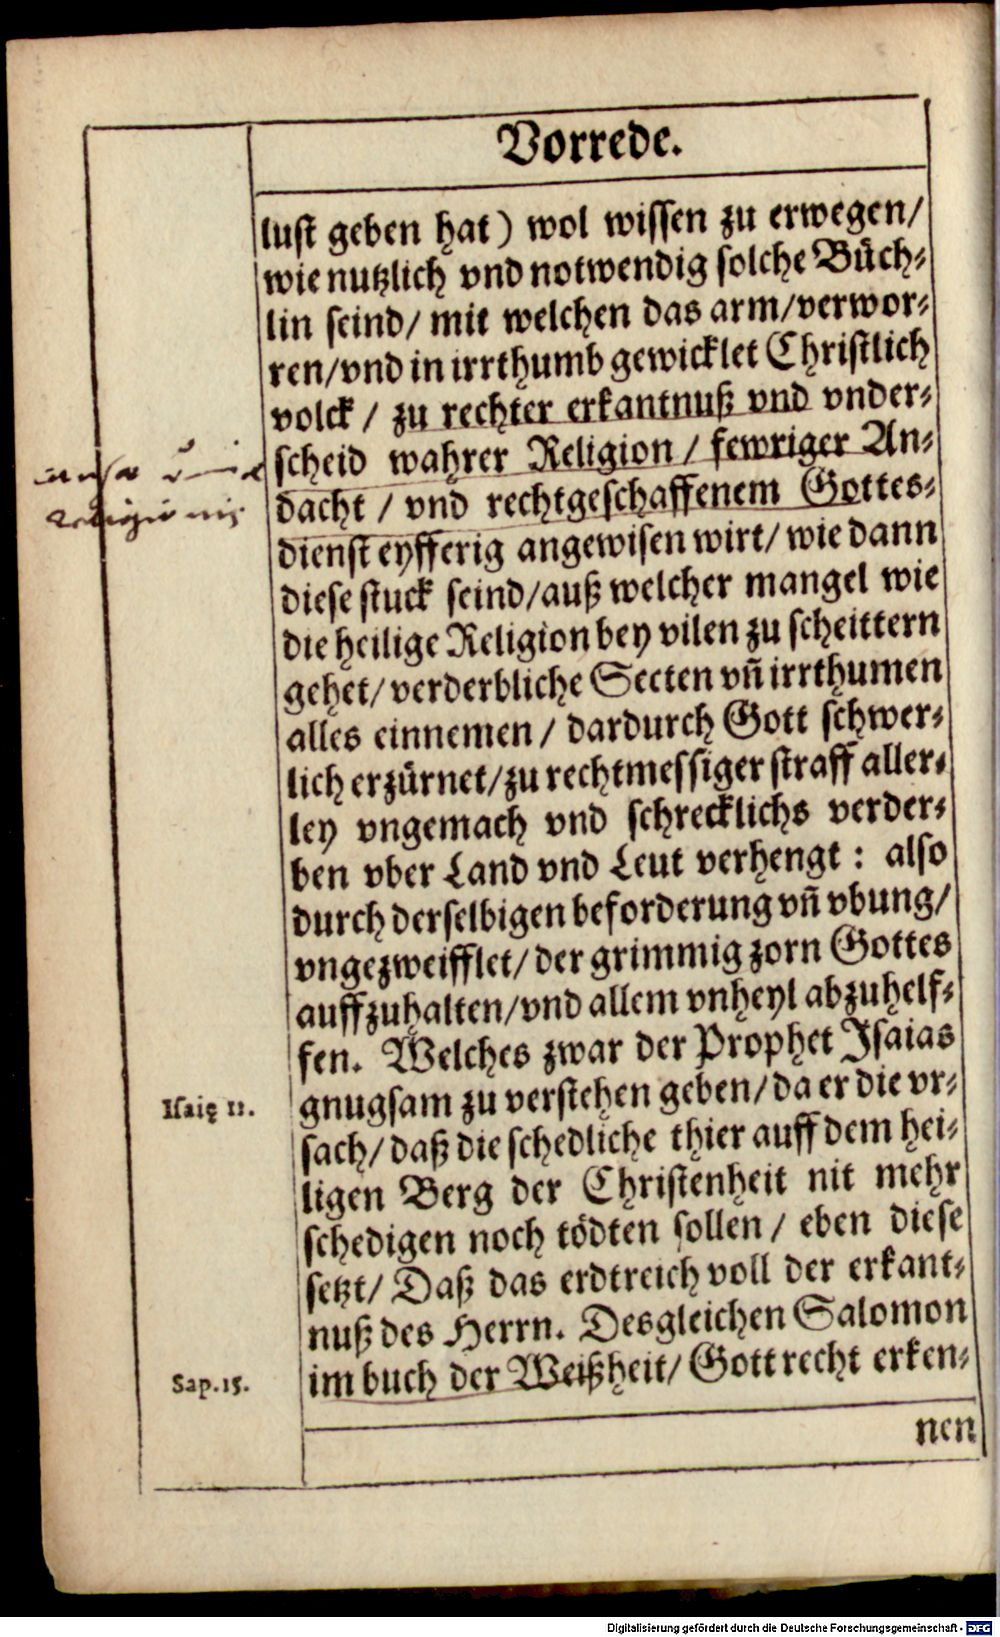 Vorrede.
lust geben hat) wol wissen zu erwegen/
wie nutzlich vnd notwendig solche Büch⸗
lin seind/ mit welchen das arm/verwor⸗
ren/vnd in irrthumb gewicklet Christlich
volck / zu rechter erkantnuß vnd vnder⸗
scheid wahrer Religion / fewriger An⸗
dacht / vnd rechtgeschaffenem Gottes⸗
dienst eyfferig angewisen wirt/ wie dann
diese stuck seind/auß welcher mangel wie
die heilige Religion bey vilen zu scheittern
gehet/ verderbliche Secten vñ irrthumen
alles einnemen / dardurch Gott schwer⸗
lich erzürnet/zu rechtmessiger straff aller⸗
ley vngemach vnd schrecklichs verder⸗
ben vber Land vnd Leut verhengt : also
durch derselbigen beforderung vñ vbung/
vngezweifflet/ der grimmig zorn Gottes
auffzuhalten/vnd allem vnheyl abzuhelf⸗
fen. Welches zwar der Prophet Isaias
Isaię 11.
gnugsam zu verstehen geben/ da er die vr⸗
sach/ daß die schedliche thier auff dem hei⸗
ligen Berg der Christenheit nit mehr
schedigen noch tödten sollen / eben diese
setzt/ Daß das erdtreich voll der erkant⸗
nuß des Herrn. Desgleichen Salomon
Sap. 15.
im buch der Weißheit/ Gott recht erken⸗
nen
Digitalisierung gefördert durch die Deutsche Forschungsgemeinschaft - DFG